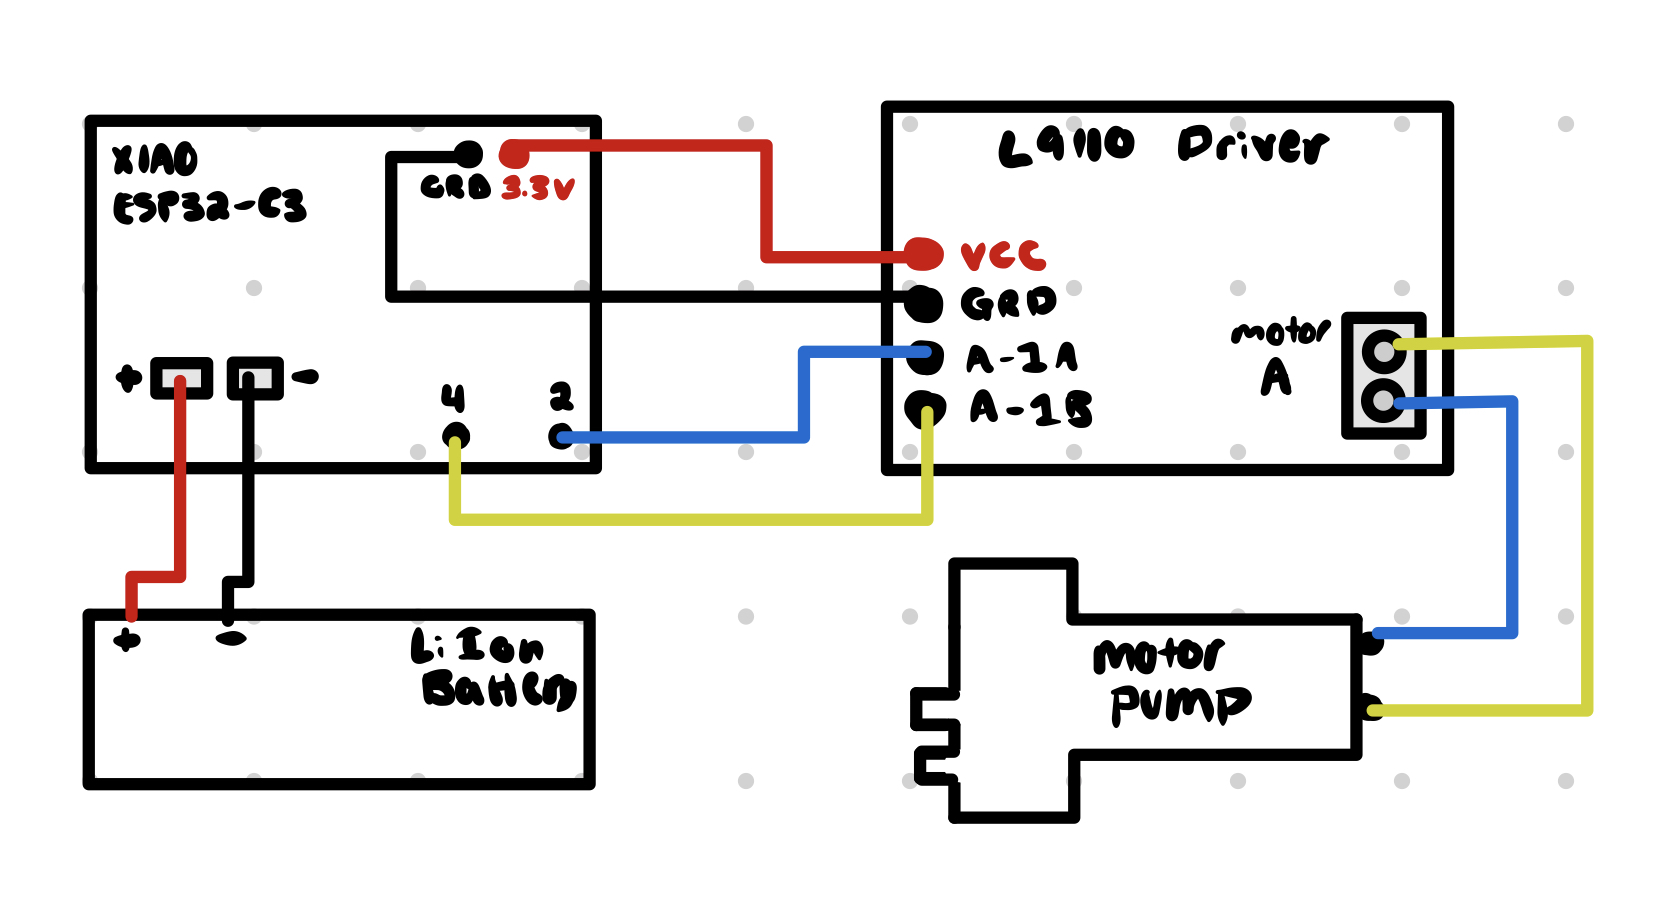 XIAO
ESP32-C3
GRD 3.3V
+ -
4 2
L9110 Driver
VCC
GRD
A-1A
A-1B
motor
A
+ -
LiIon
Battery
motor
pump